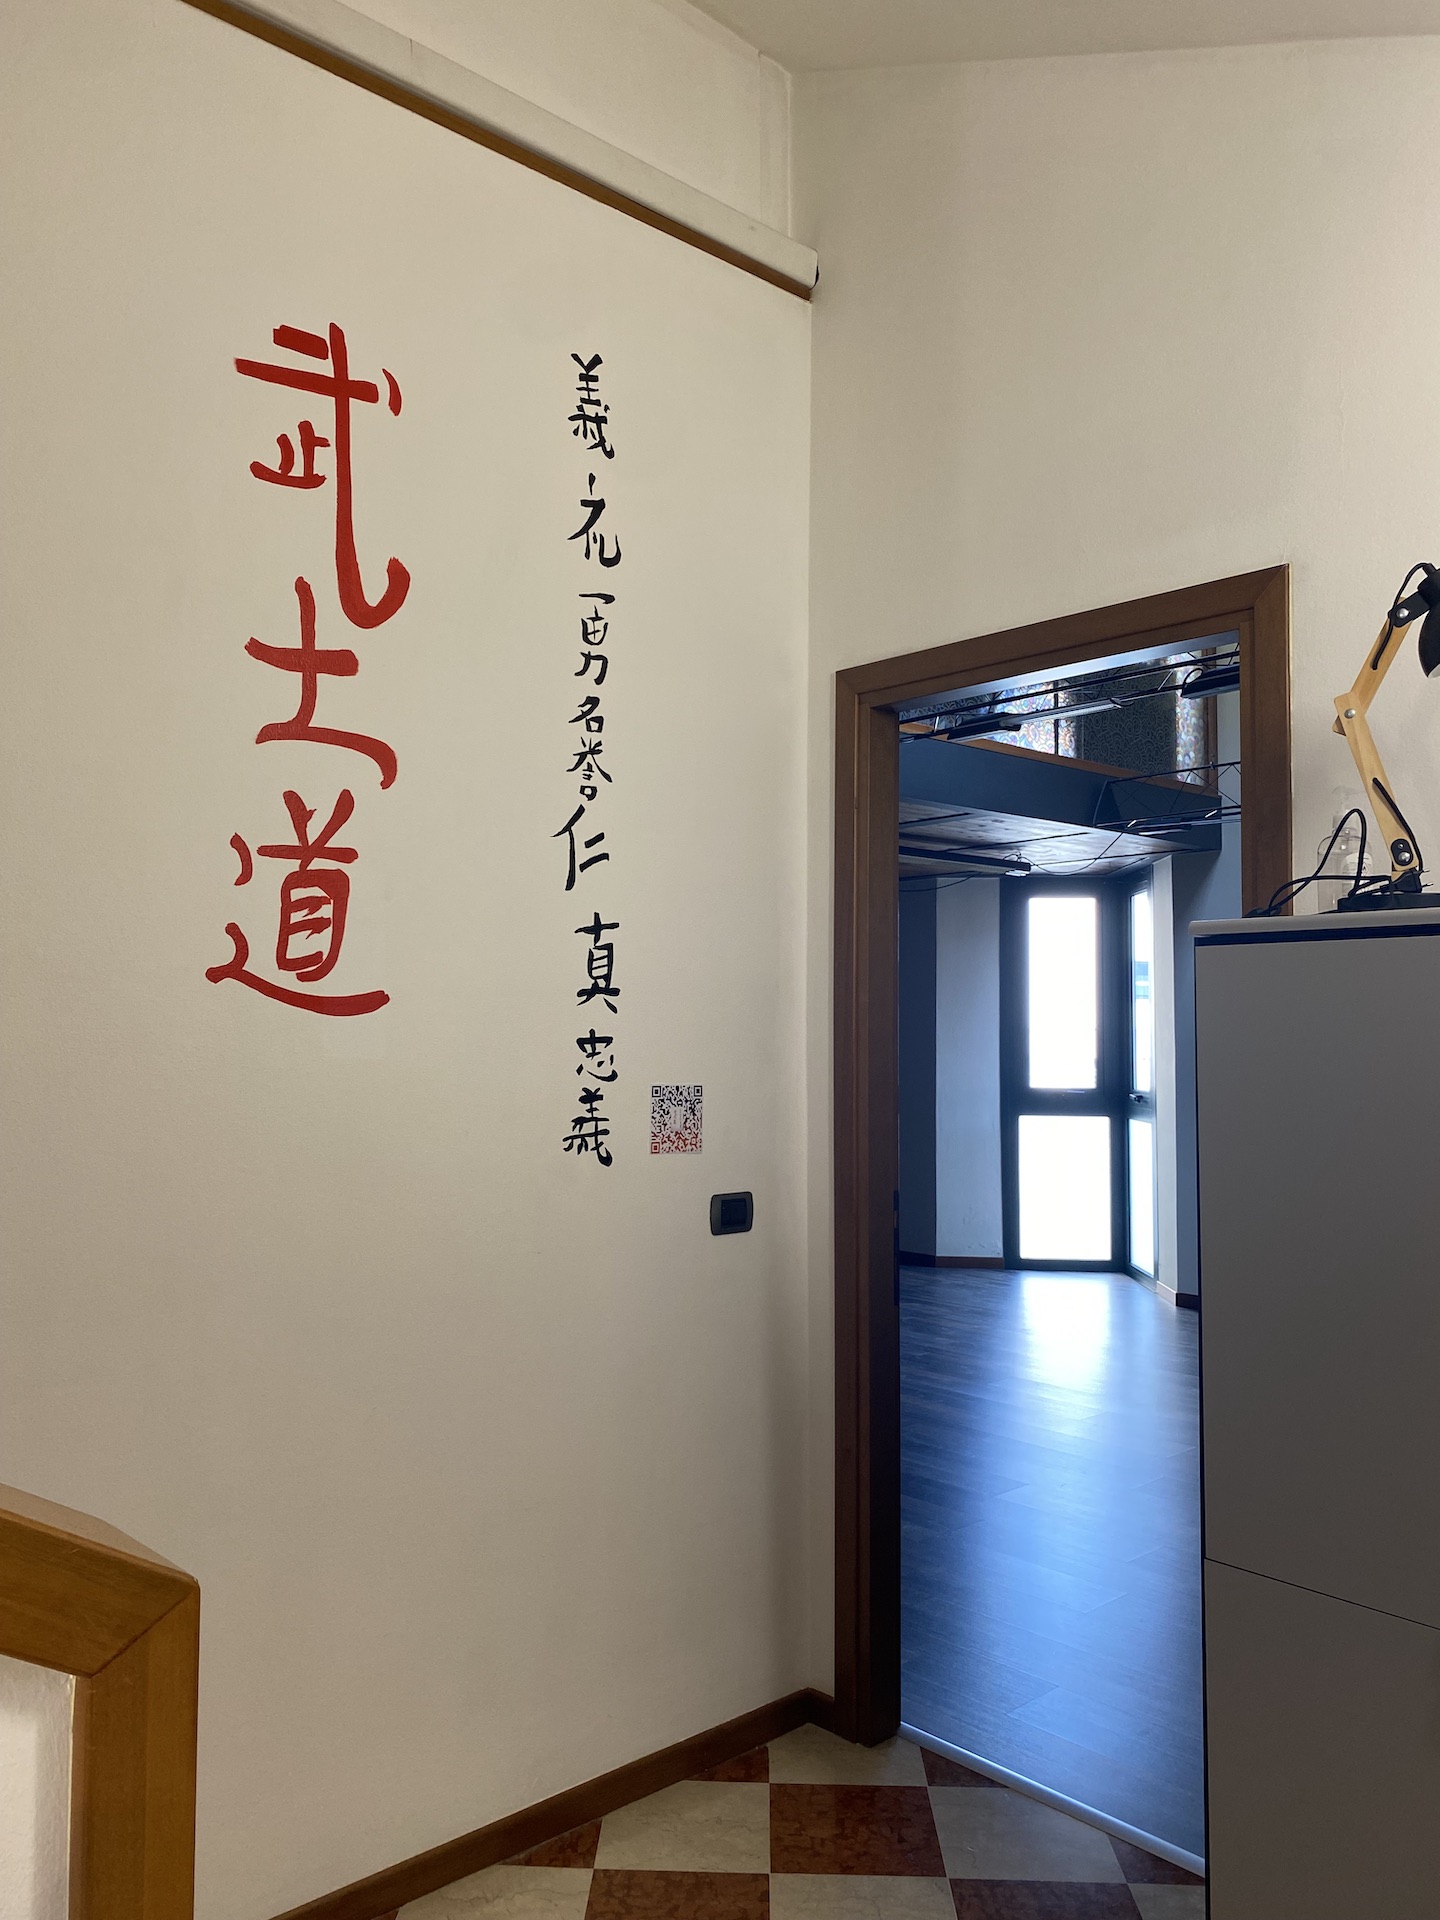 武士道
義礼勇名誉仁真忠義